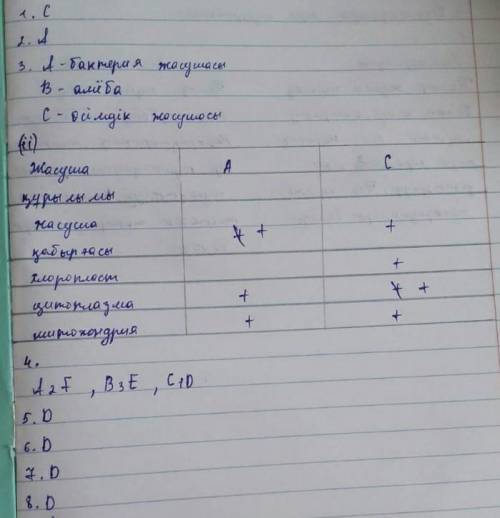 1. С
2. А
3. А - бактерия жасушасы
В - амёба
С - өсімдік жасушасы
(ii)
Жасуша А С
құрылымы
жасуша + +
қабырғасы
хлоропласт +
цитоплазма + +
митохондрия + +
4.
А2F , В3Е , С1D
5. D
6. D
7. D
8. D